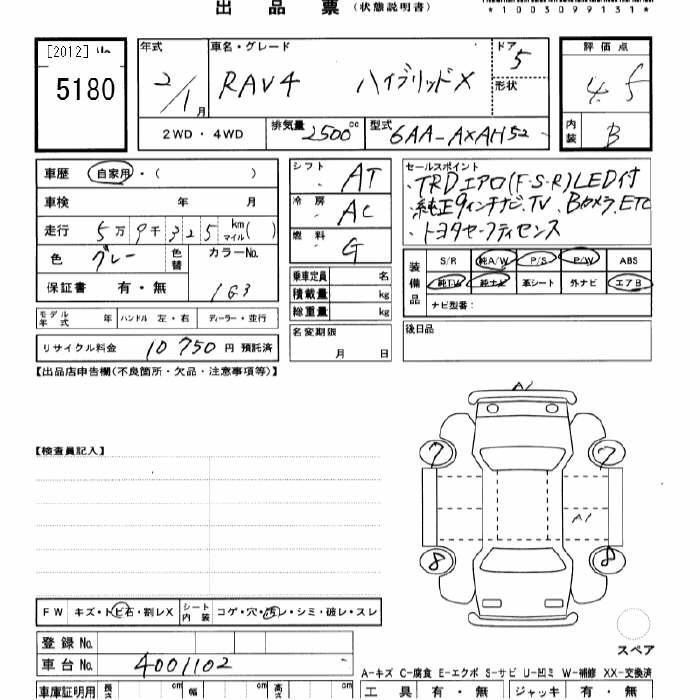 出品票 (状態説明書)
*1003099131*
[2012]
5180
年式 2/1月
車名・グレード RAV4 ハイブリッドX
ドア 5
形状
評価点 4.5
内装 B
2WD・4WD
排気量 2500cc
型式 6AA-AXAH52
車歴 自家用・( )
車検 年 月
走行 5万9千325km マイル( )
色 グレー 色替 カラーNo. 1G3
保証書 有・無
シフト AT
冷房 AC
燃料 G
乗車定員 名
積載量 kg
総重量 kg
名変期限 月 日
セールスポイント
・TRDエアロ(F・S・R)LED付
・純正9インチナビ、TV、Bカメラ、ETC
・トヨタセーフティセンス
装備品 S/R 純A/W P/S P/W ABS
純TV 純ナビ 革シート 外ナビ エアB
ナビ型番:
後日品
モデル年式 年 ハンドル 左・右 ディーラー・並行
リサイクル料金 10750円 預託済
【出品店申告欄(不良箇所・欠品・注意事項等)】
【検査員記入】
A1
7 7
A1
8 8
スペア
FW キズ・トビ石・割レX シート内装 コゲ・穴・汚レ・シミ・破レ・スレ
登録No.
車台No. 4001102
A-キズ C-腐食 E-エクボ S-サビ U-凹ミ W-補修 XX-交換済
車庫証明用 長さ cm 幅 cm 高さ cm
工具 有・無 ジャッキ 有・無